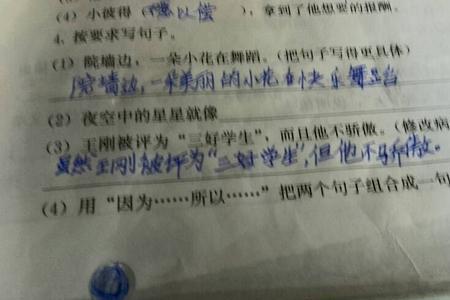 (4) 小彼得（ 以偿 ），拿到了他想要的报酬。
4. 按要求写句子。
(1) 院墙边，一朵小花在舞蹈。（把句子写得更具体）
院墙边，一朵美丽的小花在快乐舞蹈
(2) 夜空中的星星就像
(3) 王刚被评为“三好学生”，而且他不骄傲。（修改病
虽然王刚被评为“三好学生”，但他不骄傲。
(4) 用“因为……所以……”把两个句子组合成一句